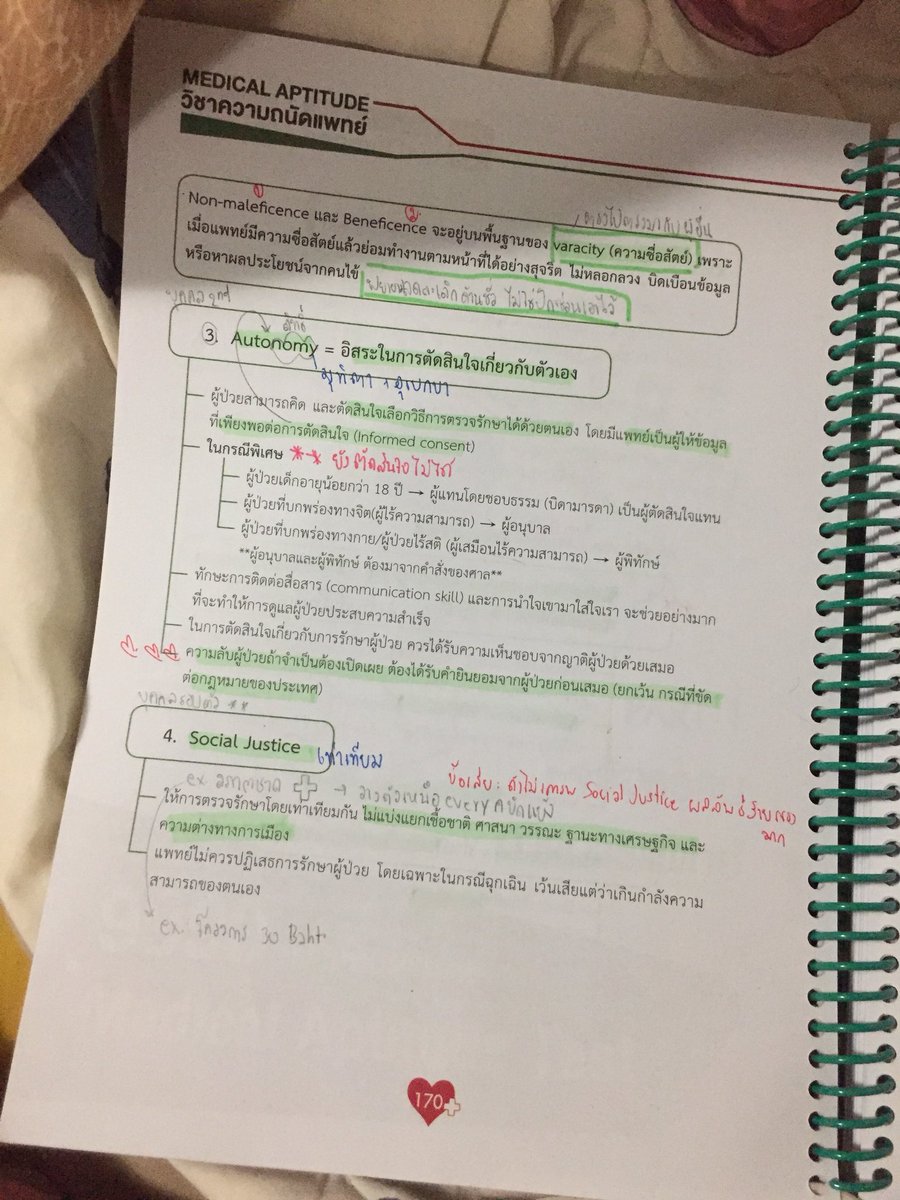 MEDICAL APTITUDE
วิชาความถนัดแพทย์
Non-maleficence และ Beneficence จะอยู่บนพื้นฐานของ varacity (ความซื่อสัตย์) เพราะ
เมื่อแพทย์มีความซื่อสัตย์แล้วย่อมทำงานตามหน้าที่ได้อย่างสุจริต ไม่หลอกลวง บิดเบือนข้อมูล
หรือหาผลประโยชน์จากคนไข้
3. Autonomy = อิสระในการตัดสินใจเกี่ยวกับตัวเอง
มุทิตา + อุเบกขา
ผู้ป่วยสามารถคิด และตัดสินใจเลือกวิธีการตรวจรักษาได้ด้วยตนเอง โดยมีแพทย์เป็นผู้ให้ข้อมูล
ที่เพียงพอต่อการตัดสินใจ (Informed consent)
ในกรณีพิเศษ ** ยังตัดสินใจไม่ได้
ผู้ป่วยเด็กอายุน้อยกว่า 18 ปี → ผู้แทนโดยชอบธรรม (บิดามารดา) เป็นผู้ตัดสินใจแทน
ผู้ป่วยที่บกพร่องทางจิต(ผู้ไร้ความสามารถ) → ผู้อนุบาล
ผู้ป่วยที่บกพร่องทางกาย/ผู้ป่วยไร้สติ (ผู้เสมือนไร้ความสามารถ) → ผู้พิทักษ์
**ผู้อนุบาลและผู้พิทักษ์ ต้องมาจากคำสั่งของศาล**
ทักษะการติดต่อสื่อสาร (communication skill) และการนำใจเขามาใส่ใจเรา จะช่วยอย่างมาก
ที่จะทำให้การดูแลผู้ป่วยประสบความสำเร็จ
ในการตัดสินใจเกี่ยวกับการรักษาผู้ป่วย ควรได้รับความเห็นชอบจากญาติผู้ป่วยด้วยเสมอ
ความลับผู้ป่วยถ้าจำเป็นต้องเปิดเผย ต้องได้รับคำยินยอมจากผู้ป่วยก่อนเสมอ (ยกเว้น กรณีที่ขัด
ต่อกฎหมายของประเทศ)
4. Social Justice เท่าเทียม
ข้อเสีย: ถ้าไม่เคารพ Social Justice
ex สภากาชาด → วางตัวเหนือ every
ให้การตรวจรักษาโดยเท่าเทียมกัน ไม่แบ่งแยกเชื้อชาติ ศาสนา วรรณะ ฐานะทางเศรษฐกิจ และ
ความต่างทางการเมือง
แพทย์ไม่ควรปฏิเสธการรักษาผู้ป่วย โดยเฉพาะในกรณีฉุกเฉิน เว้นเสียแต่ว่าเกินกำลังความ
สามารถของตนเอง
ex. โครงการ 30 Baht
170